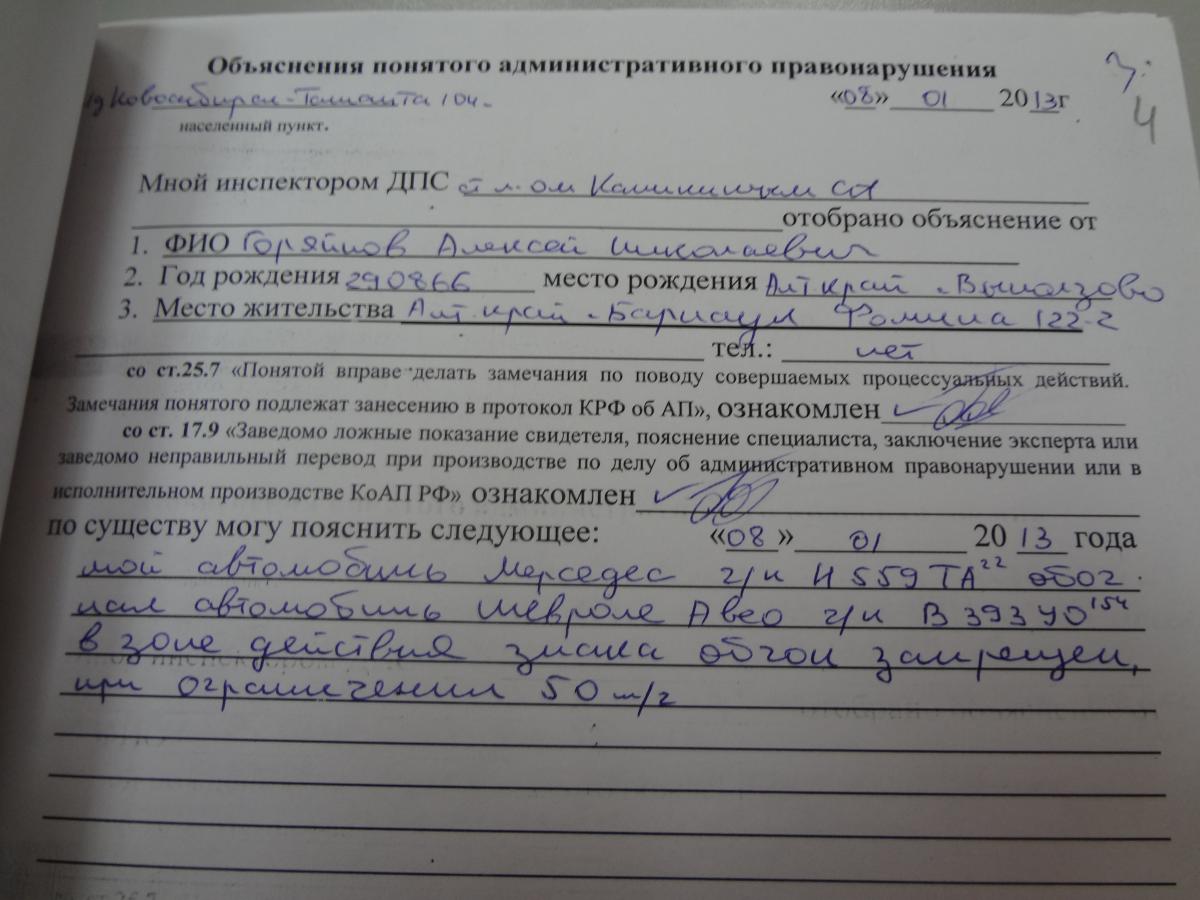 Объяснения понятого административного правонарушения
3.
4
Новосибирск-Ташанта 104-
«08» 01 2013г
населенный пункт.
Мной инспектором ДПС ст л-ом
отобрано объяснение от
1. ФИО Горяйнов Алексей Николаевич
2. Год рождения 290866 место рождения Алт край
3. Место жительства Алт. край г. Барнаул Фомина 122-2
тел.: нет
со ст.25.7 «Понятой вправе делать замечания по поводу совершаемых процессуальных действий.
Замечания понятого подлежат занесению в протокол КРФ об АП», ознакомлен
со ст. 17.9 «Заведомо ложные показание свидетеля, пояснение специалиста, заключение эксперта или
заведомо неправильный перевод при производстве по делу об административном правонарушении или в
исполнительном производстве КоАП РФ» ознакомлен
по существу могу пояснить следующее: «08» 01 2013 года
мой автомобиль Мерседес г/н Н 559 ТА 22 обог
нал автомобиль Шевроле Авео г/н 154
в зоне действия знака обгон запрещен,
при ограничении 50